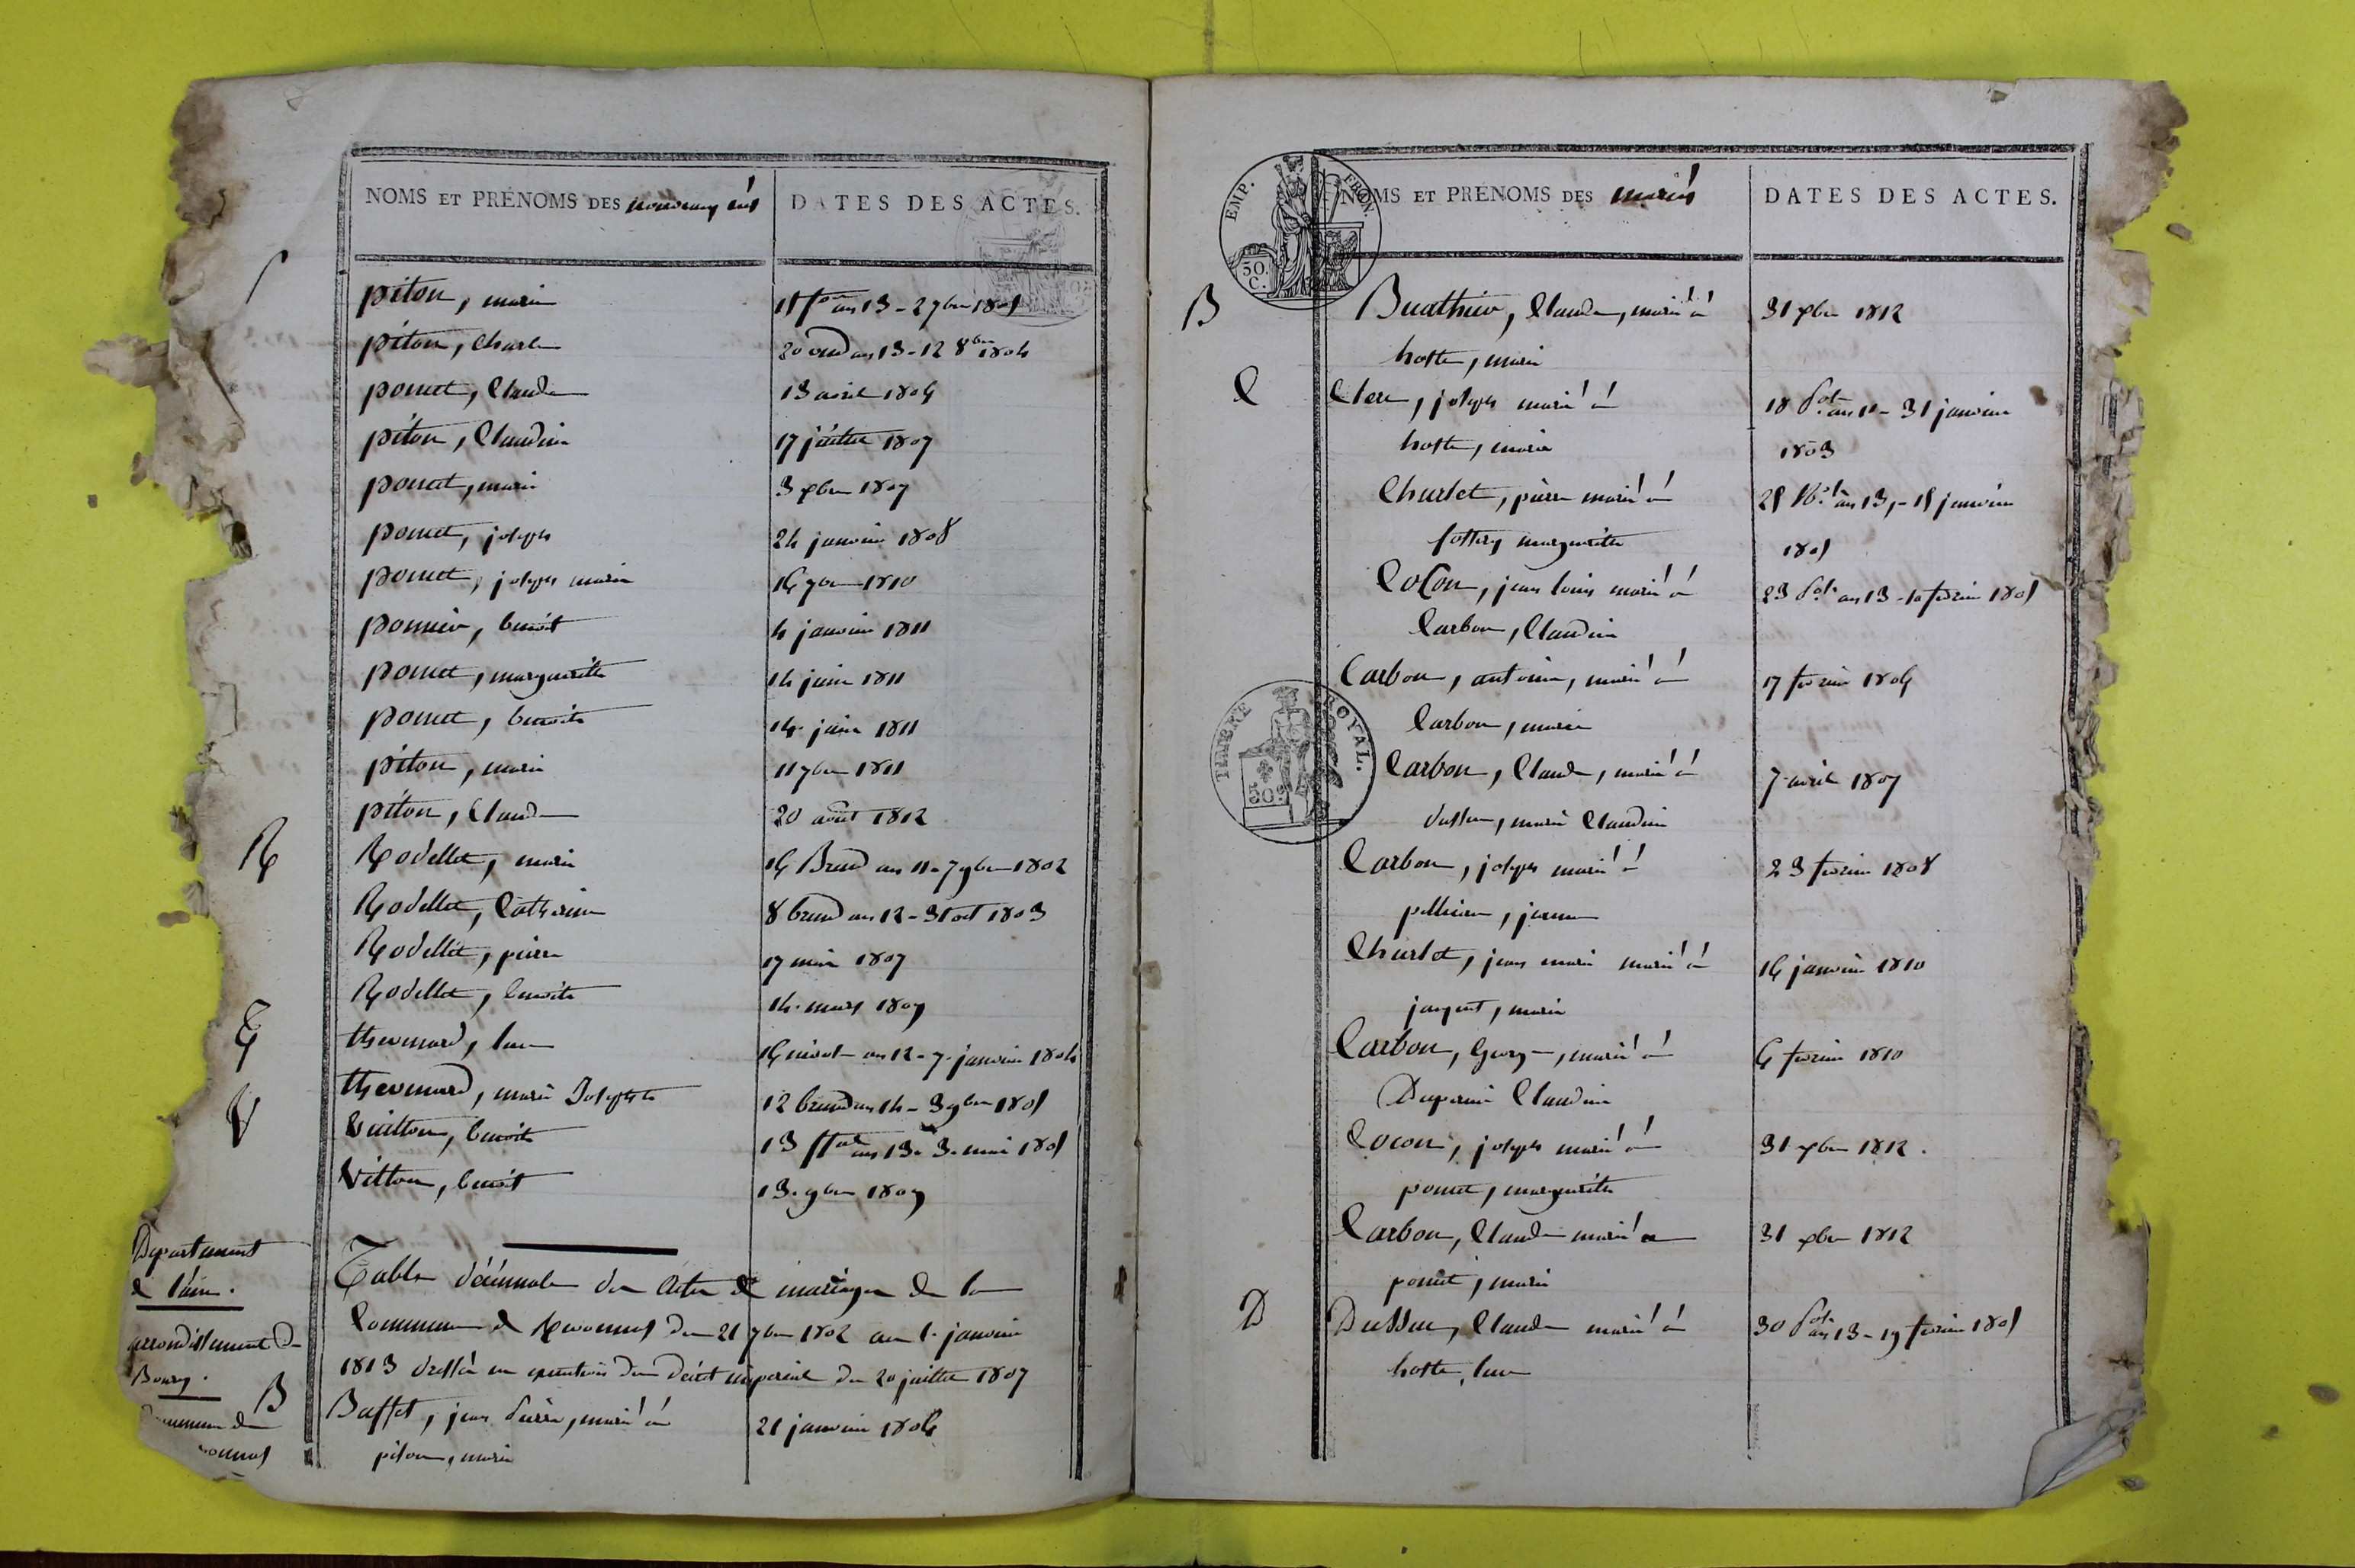 NOMS ET PRÉNOMS DES nouveaux nés
DATES DES ACTES.
P
piton, marie
an 13 - 2 7bre 1805
piton, Charle
20 vend an 13 - 12 8bre 1804
pomet, Claude
13 avril 1806
piton, Claudine
17 juillet 1807
pomet, marie
3 xbre 1807
pomet, joseph
24 janvier 1808
pomet, joseph marie
16 7bre 1810
benoit
4 janvier 1811
pomet, marguerite
14 juin 1811
pomet, benoite
14 juin 1811
piton, marie
11 7bre 1811
piton, Claude
20 août 1812
R
Rodellet, marie
16 Brum an 11 - 7 9bre 1802
Rodellet, Catherine
8 brum an 12 - 31 oct 1803
Rodellet, pierre
17 mai 1807
Rodellet, benoite
14 mars 1809
T
thevenard, luce
16 nivose an 12 - 7 janvier 1804
V
thevenard, marie Josephte
12 brum an 14 - 3 9bre 1805
Vuitton, benoite
13 fral an 13 - 3 mai 1805
Vitton, benoit
13 9bre 1809
Departement
de l'ain.
arrondissement de
Bourg.
Commune de
ronnas
Table décennale des actes de mariages de la
Commune de du 21 7bre 1802 au 1er janvier
1813 dressée en execution du decret imperial du 20 juillet 1807
B
Buffet, jean Pierre, marié à
21 janvier 1806
piton, marie
EMP. FRAN.
50 C.
NOMS ET PRÉNOMS DES mariés
DATES DES ACTES.
B
Buathier, Claude, marié à
31 xbre 1812
hoste, marie
C
Clerc, joseph marié à
an 11 - 31 janvier
hoste, marie
1803
Charlet, pierre marié à
25 an 13, - 15 janvier
marguerite
1805
Cocon, jean louis marié à
23 an 13 - fevrier 1805
Carbon, Claudine
Carbon, antoine, marié à
17 fevrier 1806
TIMBRE ROYAL.
50 c
Carbon, marie
Carbon, Claude, marié à
7 avril 1807
marie Claudine
Carbon, joseph marié à
23 fevrier 1808
jeanne
Charlet, jean marie marié à
16 janvier 1810
marie
Carbon, marié à
6 fevrier 1810
Duperrier Claudine
Cocon, joseph marié à
31 xbre 1812.
pomet, marguerite
Carbon, Claude marié a
31 xbre 1812
pomet, marie
D
Claude marié à
30 an 13 - 19 fevrier 1805
hoste, luce